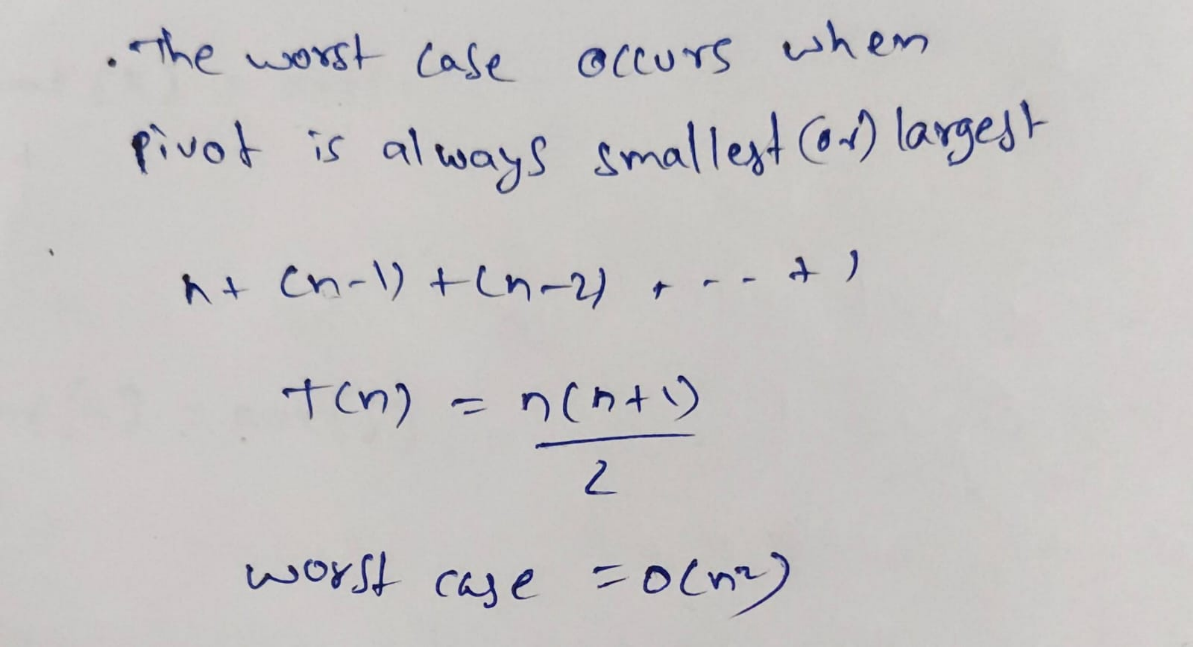 . The worst case occurs when
pivot is always smallest (or) largest
n + (n-1) + (n-2) + - - - + 1
T(n) = n(n+1)
2
worst case = O(n²)